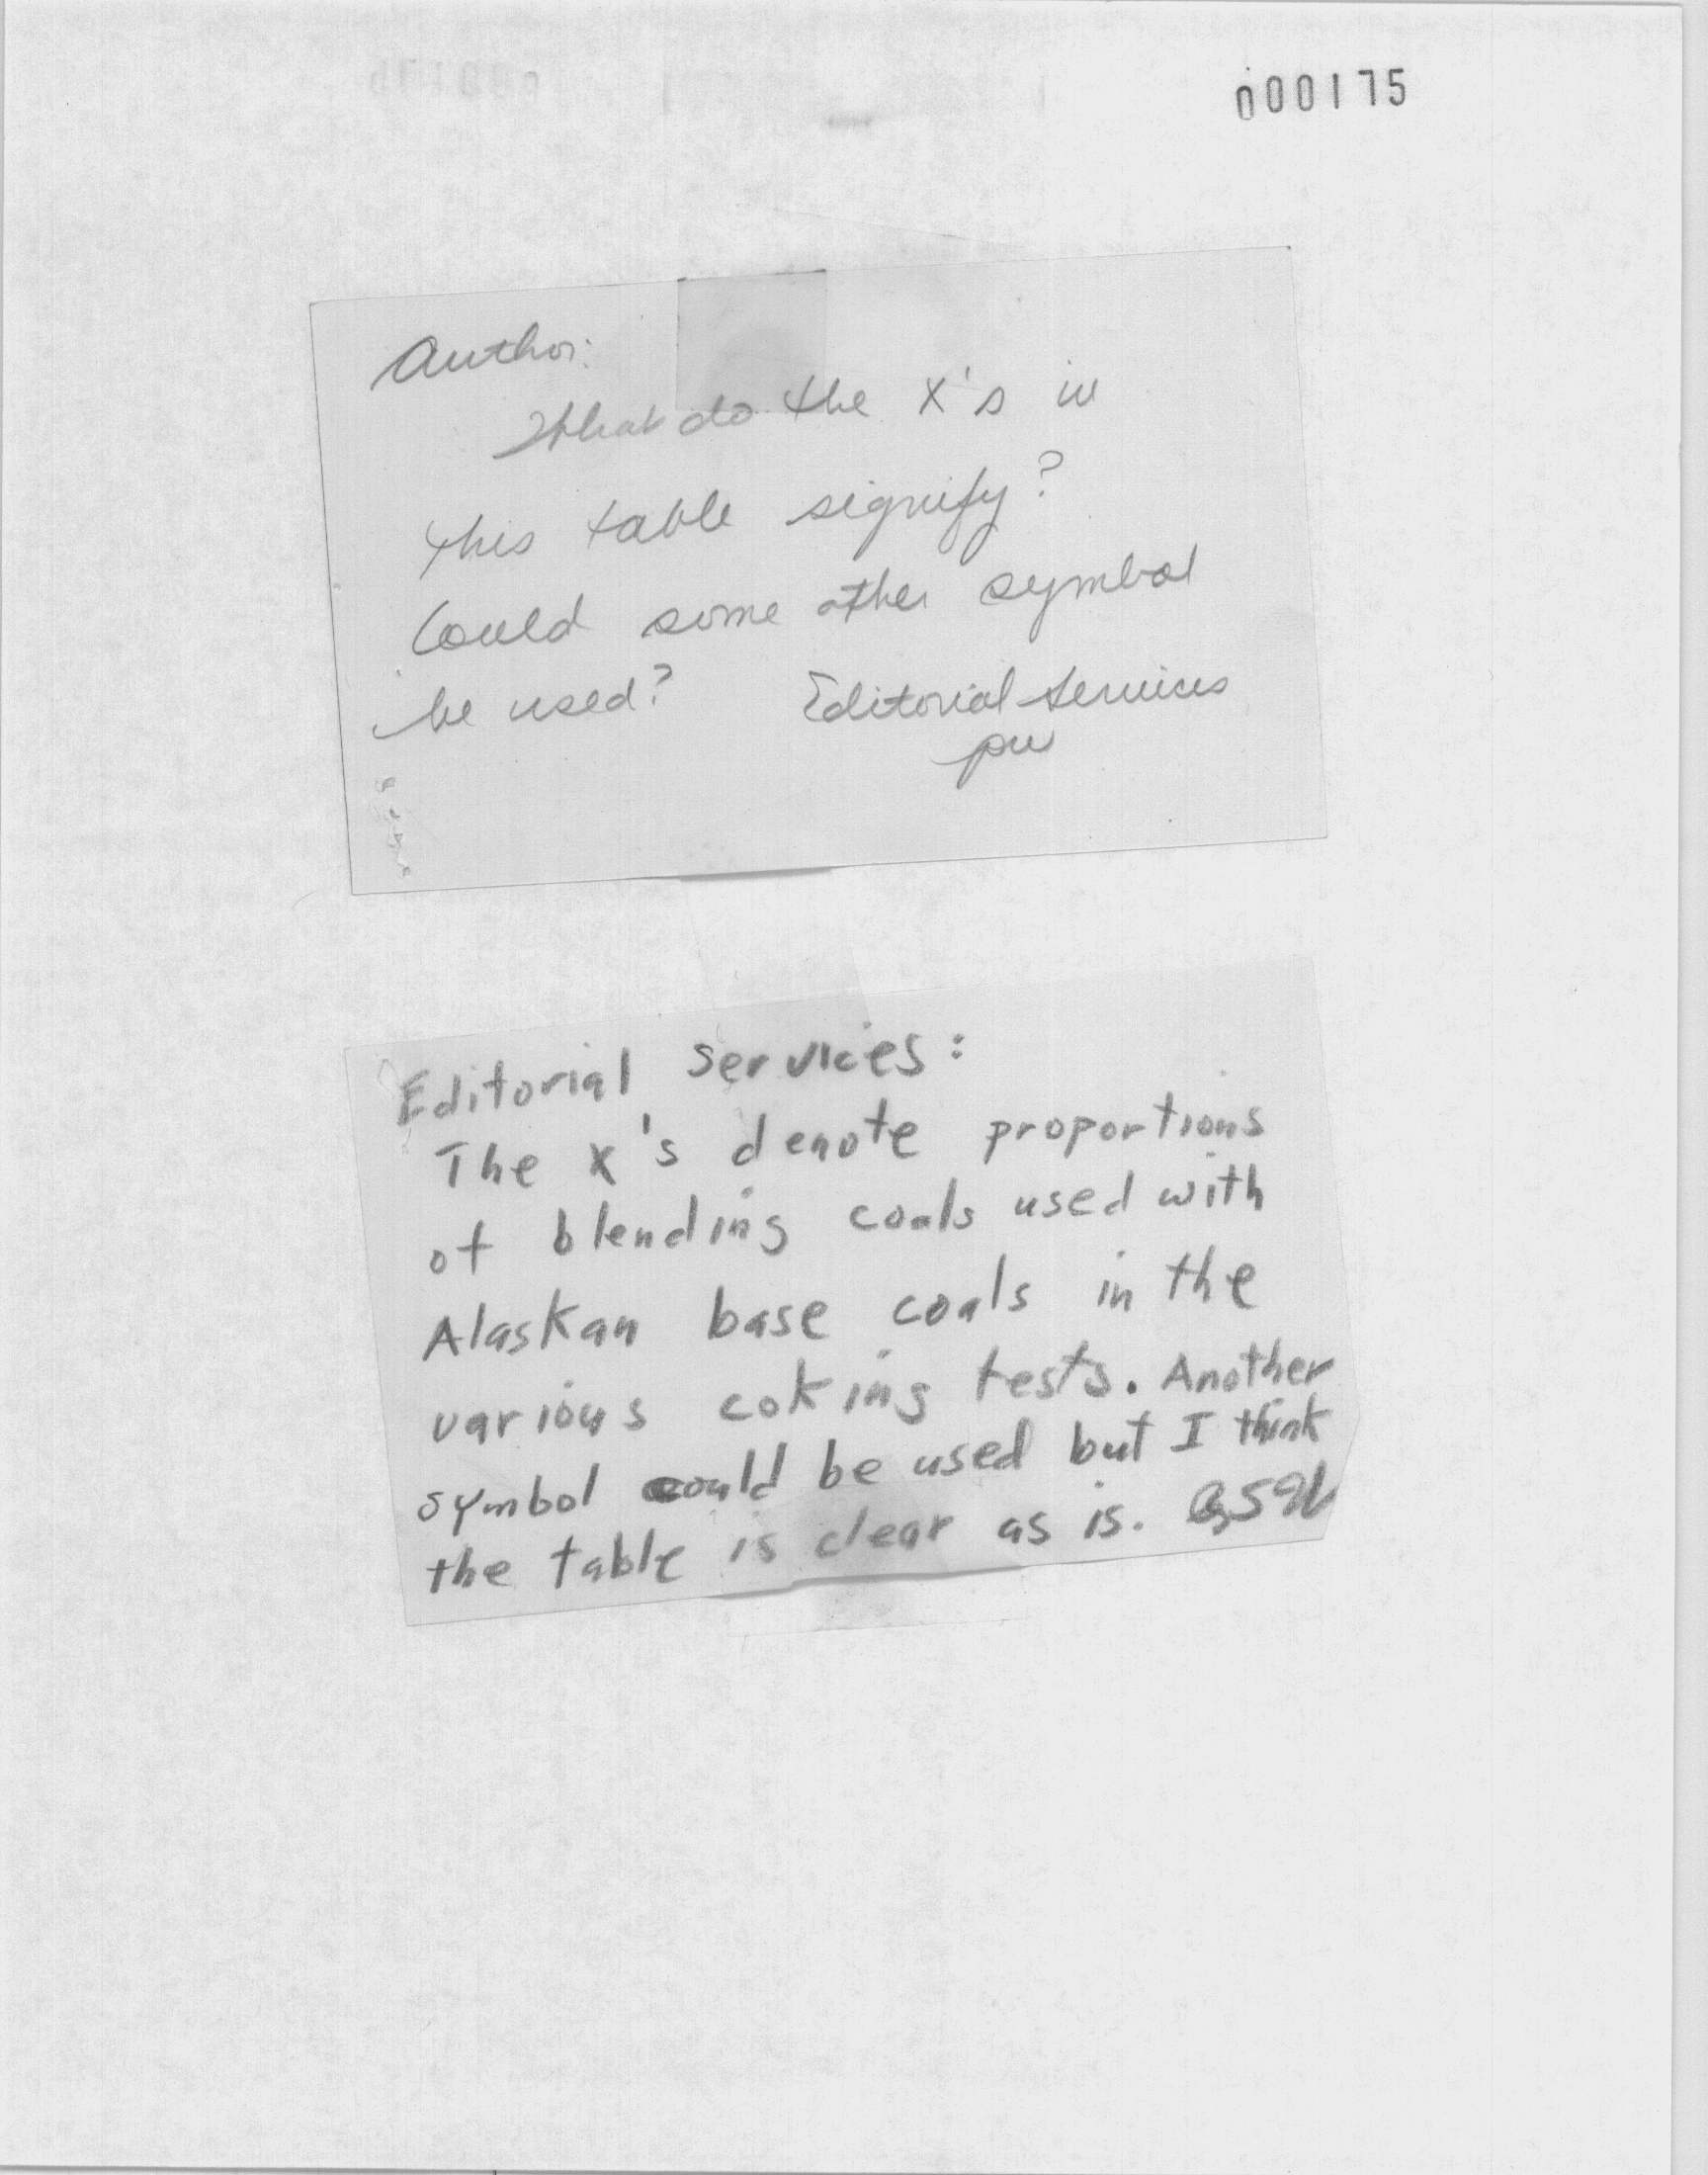 000175
Author:
What do the X's in
this table signify?
Could some other symbol
be used? Editorial Services
pw
Editorial services:
The X's denote proportions
of blending coals used with
Alaskan base coals in the
various coking tests. Another
symbol could be used but I think
the table is clear as is.